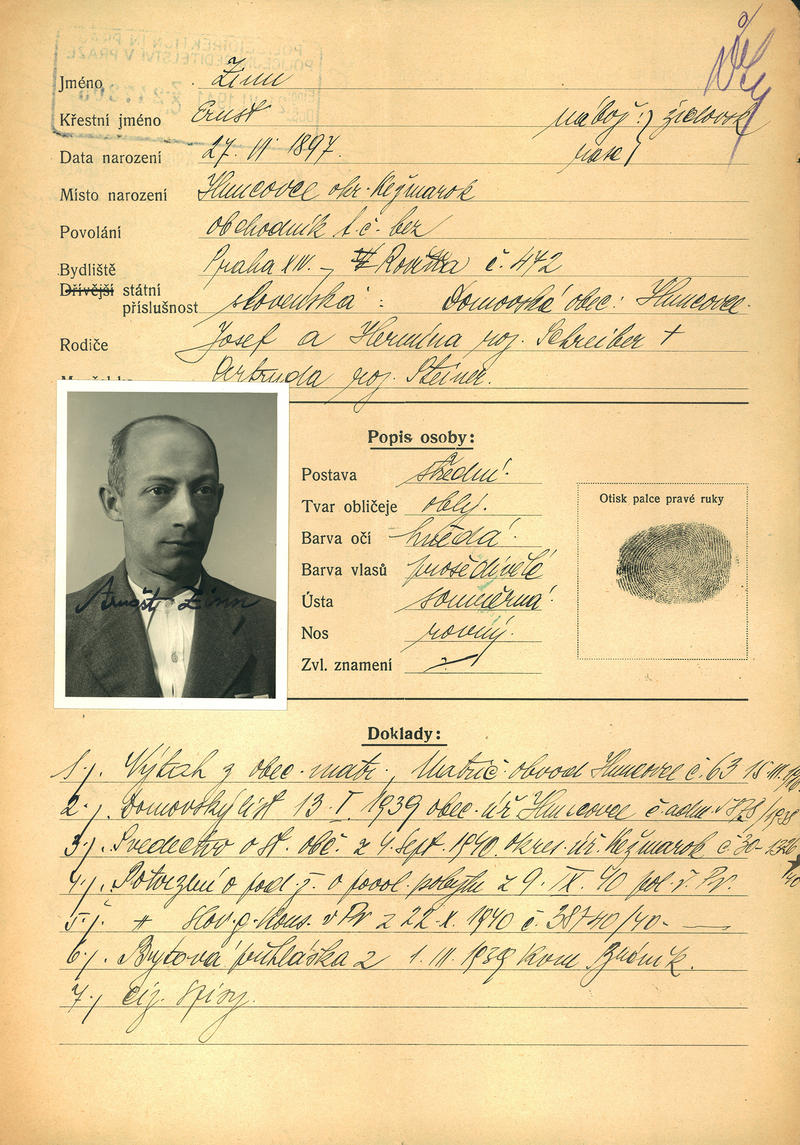 POLIZEIDIREKTION IN PRAG
POLICEJNÍ ŘEDITELSTVÍ V PRAZE
Jméno Zinn
Křestní jméno Ernst nábož.} židovsk
Data narození 27. VI 1897. rasa}
Místo narození Huncovce okr. Kežmarok
Povolání obchodník t. č. bez
Bydliště Praha XIV. - č. 472
Dřívější státní
příslušnost slovenská : Domovská obec: Huncovce.
Rodiče Josef a Hermina roz. Schreiber +
Gertruda roz. Steiner.
Popis osoby:
Postava střední.
Tvar obličeje oblý.
Barva očí hnědá.
Barva vlasů prošedivělé
Ústa souměrná.
Nos rovný.
Zvl. znamení
Otisk palce pravé ruky
Arnošt Zinn
Doklady:
1./. Výtah z obec. matr., Matrič. obvod Huncovce č. 63 15. III.
2./. Domovský list 13. I. 1939 obec. úř. Huncovce č. adm. /1938
3./. Svedectvo o st. obč. z 4. sept. 1940 okres. úř. Kežmarok č.
4./. Potvrzení o pod. ž. o povol. pobytu z 9. IX. 40 pol. ř. Pr.
5./. slov. g. kons. v Pr z 22. X. 1940 č. 38740/40. -
6./. Bytová přihláška z 1. III. 1939 kom.
7./ ciz. spisy.